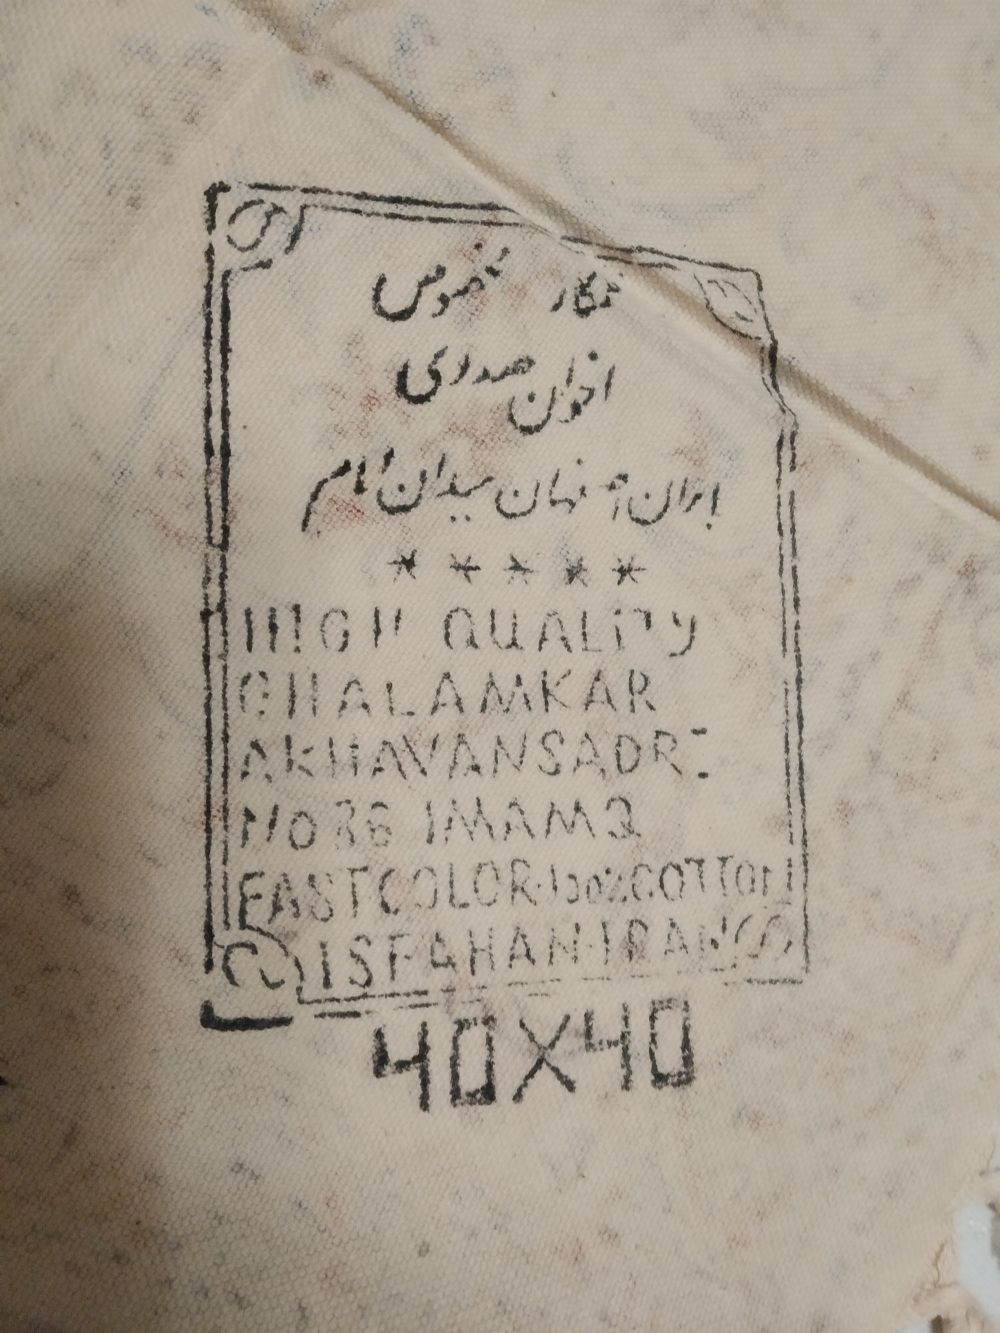 قلمکار مخصوص
اخوان صدری
ایران اصفهان میدان امام
*****
HIGH QUALITY
GHALAMKAR
AKHAVANSADRI
NO 36 IMAM
FASTCOLOR·100%COTTON
ISFAHAN·IRAN
40X40